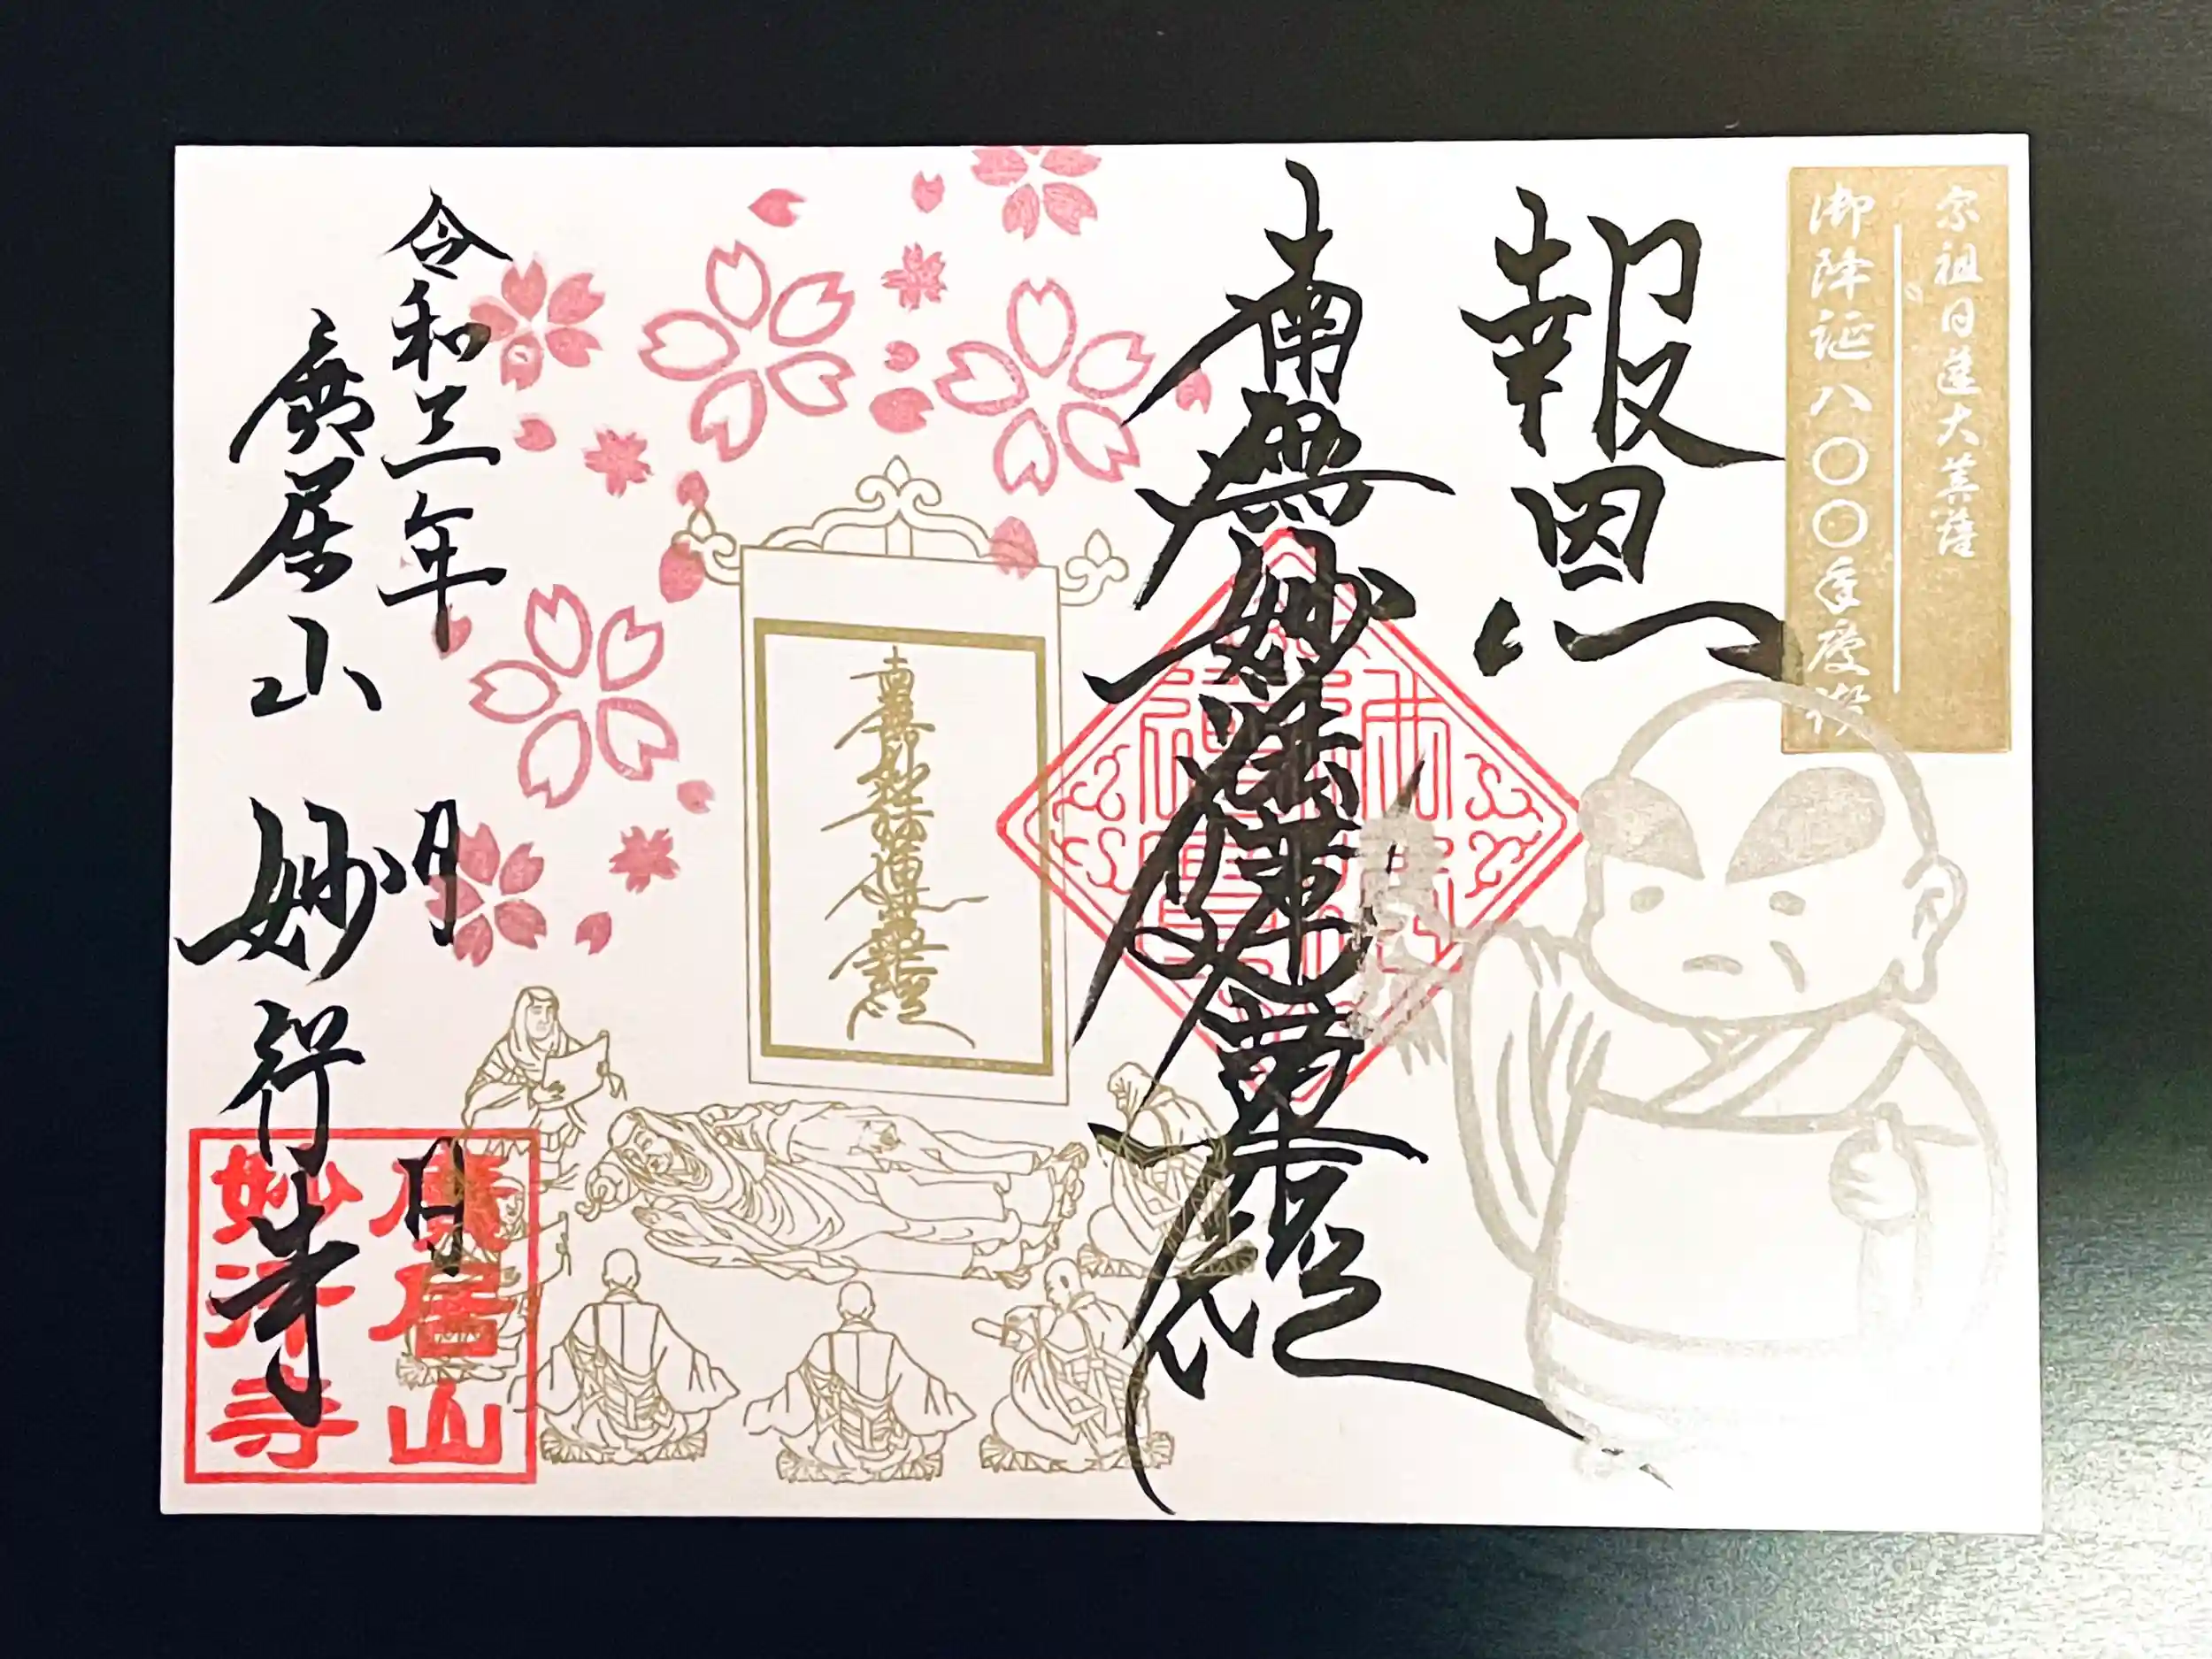 宗祖日蓮大菩薩
御降誕八〇〇年慶讃
報恩
南無妙法蓮華経
南無妙法蓮華経
令和三年 月 日
廣居山 妙行寺
廣居山
妙行寺